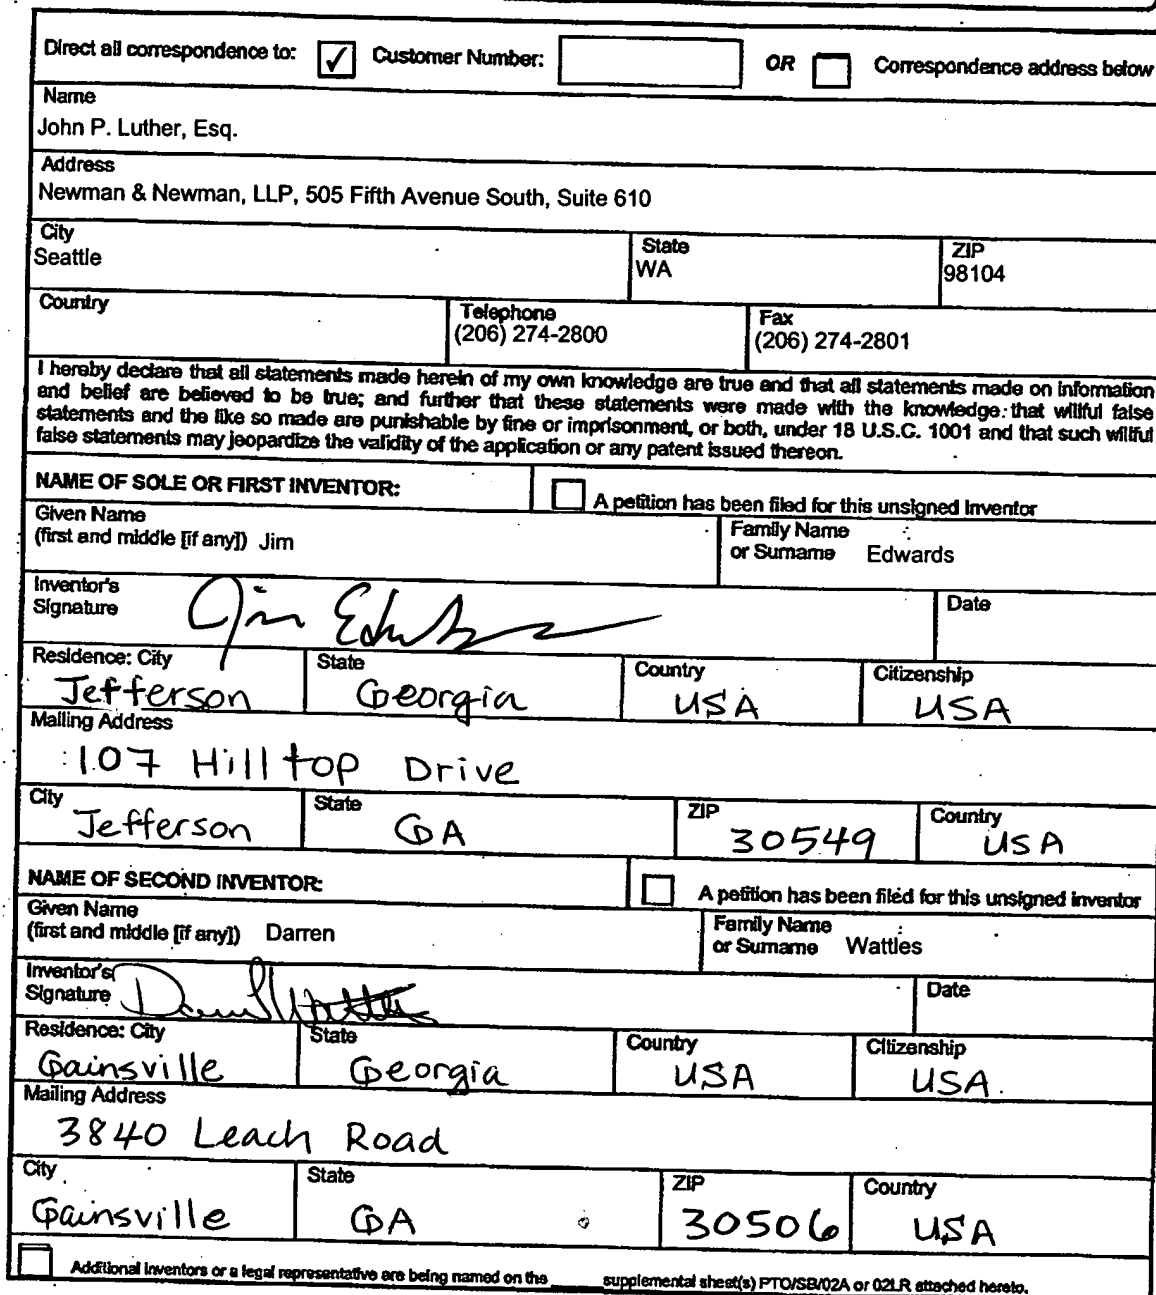 Direct all correspondence to: ✓ Customer Number: OR Correspondence address below
Name
John P. Luther, Esq.
Address
Newman & Newman, LLP, 505 Fifth Avenue South, Suite 610
City State ZIP
Seattle WA 98104
Country Telephone Fax
(206) 274-2800 (206) 274-2801
I hereby declare that all statements made herein of my own knowledge are true and that all statements made on information
and belief are believed to be true; and further that these statements were made with the knowledge that willful false
statements and the like so made are punishable by fine or imprisonment, or both, under 18 U.S.C. 1001 and that such willful
false statements may jeopardize the validity of the application or any patent issued thereon.
NAME OF SOLE OR FIRST INVENTOR: A petition has been filed for this unsigned Inventor
Given Name Family Name
(first and middle [if any]) Jim or Surname Edwards
Inventor's Date
Signature Jim Edwards
Residence: City State Country Citizenship
Jefferson Georgia USA USA
Mailing Address
107 Hilltop Drive
City State ZIP Country
Jefferson GA 30549 USA
NAME OF SECOND INVENTOR: A petition has been filed for this unsigned inventor
Given Name Family Name
(first and middle [if any]) Darren or Surname Wattles
Inventor's Date
Signature
Residence: City State Country Citizenship
Gainsville Georgia USA USA
Mailing Address
3840 Leach Road
City State ZIP Country
Gainsville GA 30506 USA
Additional inventors or a legal representative are being named on the ____ supplemental sheet(s) PTO/SB/02A or 02LR attached hereto.